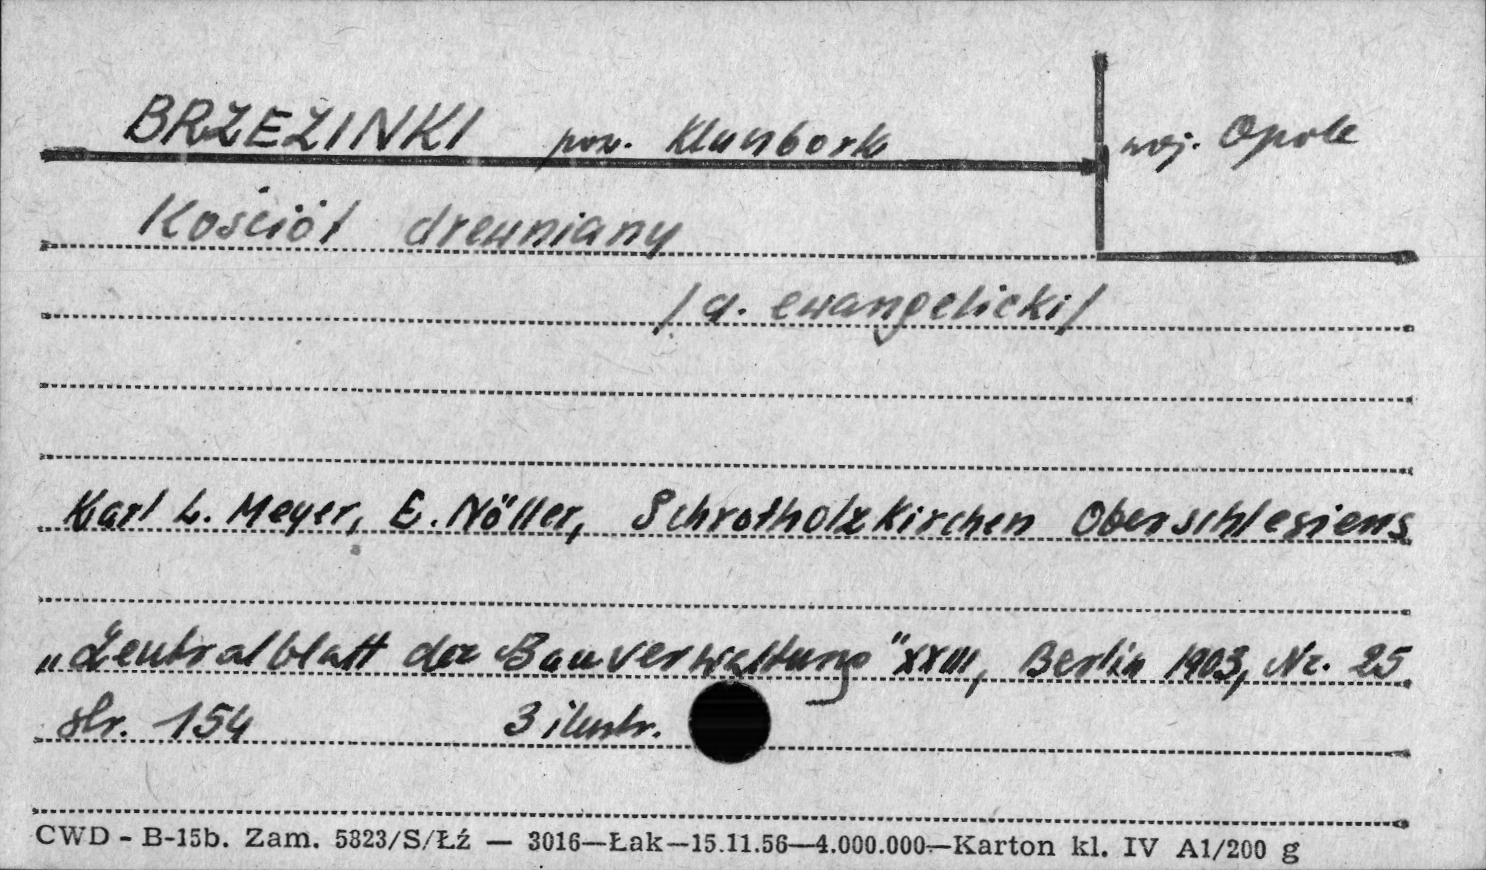 BRZEZINKI pow. Kluczbork woj. Opole
Kościół drewniany
/d. ewangelicki/
Karl L. Meyer, E. Nöller, Schrotholzkirchen Oberschlesiens
„Zentralblatt der Bauverwaltung" XXIII, Berlin 1903, Nr. 25
str. 154 3 ilustr.
CWD - B-15b. Zam. 5823/S/Łź — 3016—Łak—15.11.56—4.000.000—Karton kl. IV A1/200 g